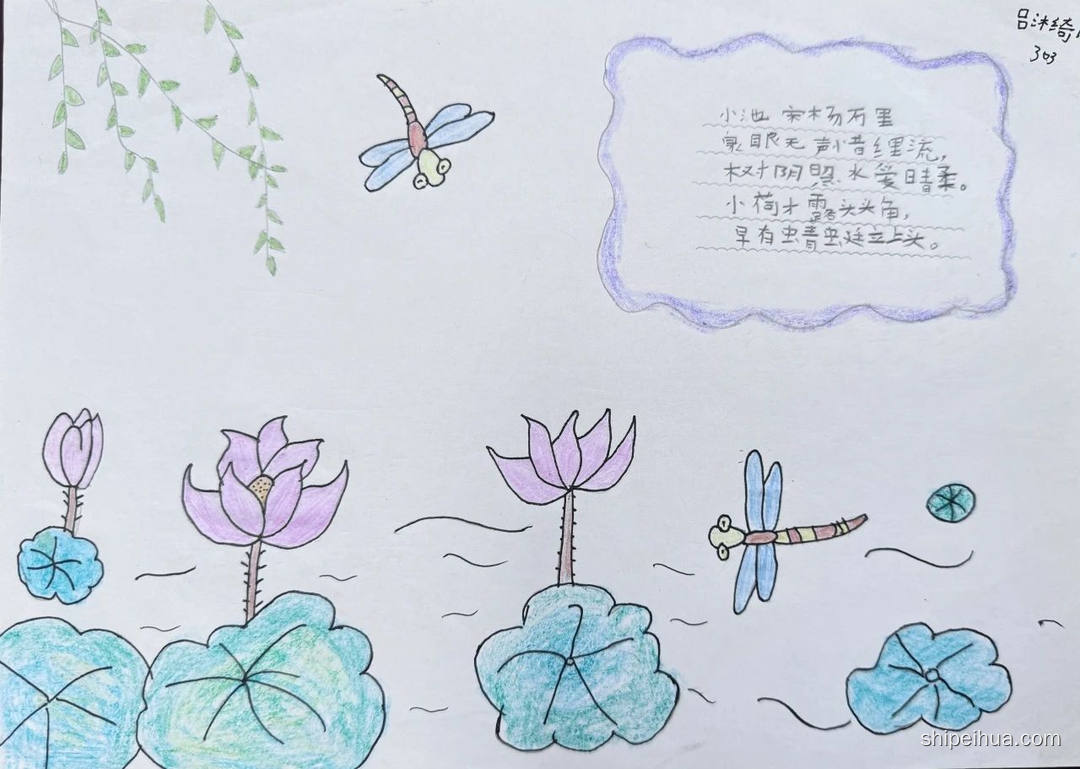 吕沐绮
303
小池 宋 杨万里
泉眼无声惜细流,
树阴照水爱晴柔。
小荷才露头头角,
早有蜻蜓立上头。
shipeihua.com